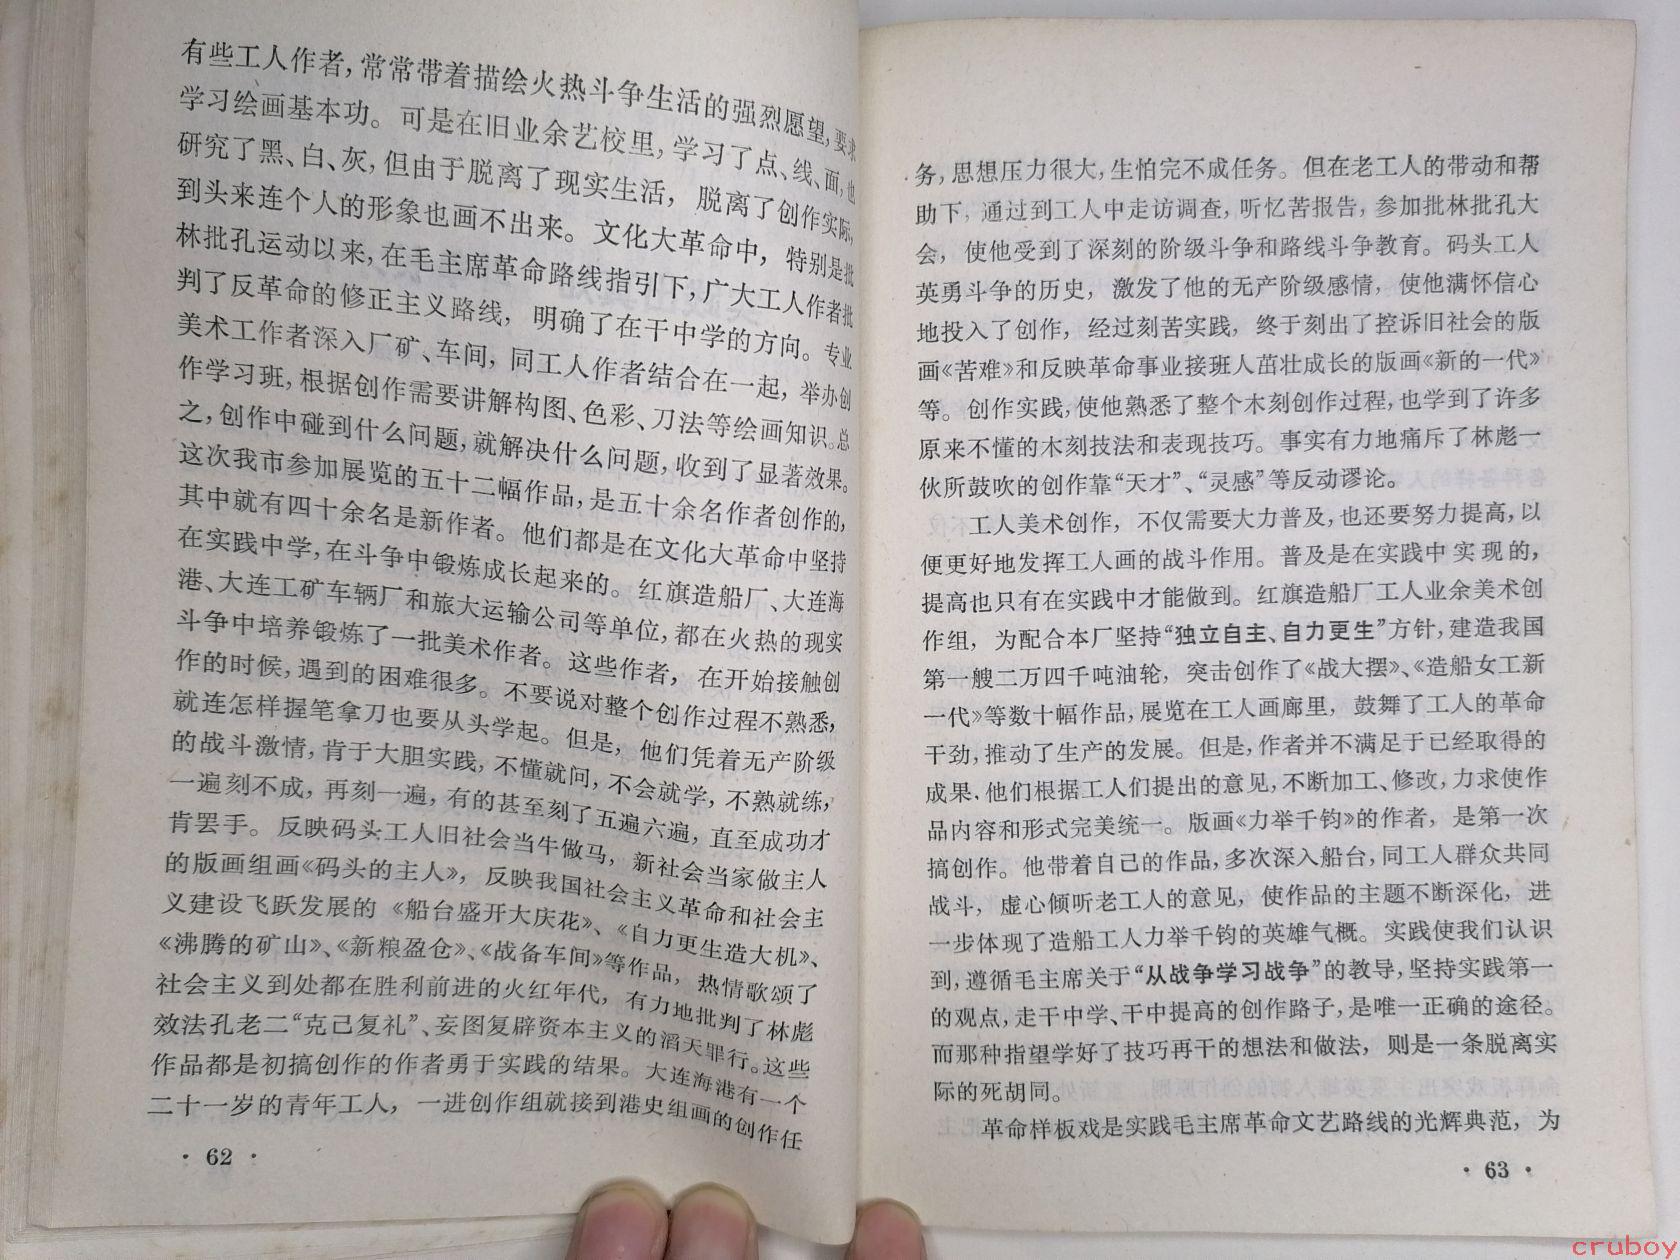 有些工人作者，常常带着描绘火热斗争生活的强烈愿望，要求
学习绘画基本功。可是在旧业余艺校里，学习了点、线、面，也
研究了黑、白、灰，但由于脱离了现实生活，脱离了创作实际，
到头来连个人的形象也画不出来。文化大革命中，特别是批
林批孔运动以来，在毛主席革命路线指引下，广大工人作者批
判了反革命的修正主义路线，明确了在干中学的方向。专业
美术工作者深入厂矿、车间，同工人作者结合在一起，举办创
作学习班，根据创作需要讲解构图、色彩、刀法等绘画知识。总
之，创作中碰到什么问题，就解决什么问题，收到了显著效果。
这次我市参加展览的五十二幅作品，是五十余名作者创作的，
其中就有四十余名是新作者。他们都是在文化大革命中坚持
在实践中学，在斗争中锻炼成长起来的。红旗造船厂、大连海
港、大连工矿车辆厂和旅大运输公司等单位，都在火热的现实
斗争中培养锻炼了一批美术作者。这些作者，在开始接触创
作的时候，遇到的困难很多。不要说对整个创作过程不熟悉，
就连怎样握笔拿刀也要从头学起。但是，他们凭着无产阶级
的战斗激情，肯于大胆实践，不懂就问，不会就学，不熟就练，
一遍刻不成，再刻一遍，有的甚至刻了五遍六遍，直至成功才
肯罢手。反映码头工人旧社会当牛做马，新社会当家做主人
的版画组画《码头的主人》，反映我国社会主义革命和社会主
义建设飞跃发展的《船台盛开大庆花》、《自力更生造大机》、
《沸腾的矿山》、《新粮盈仓》、《战备车间》等作品，热情歌颂了
社会主义到处都在胜利前进的火红年代，有力地批判了林彪
效法孔老二“克己复礼”、妄图复辟资本主义的滔天罪行。这些
作品都是初搞创作的作者勇于实践的结果。大连海港有一个
二十一岁的青年工人，一进创作组就接到港史组画的创作任
· 62 ·
务，思想压力很大，生怕完不成任务。但在老工人的带动和帮
助下，通过到工人中走访调查，听忆苦报告，参加批林批孔大
会，使他受到了深刻的阶级斗争和路线斗争教育。码头工人
英勇斗争的历史，激发了他的无产阶级感情，使他满怀信心
地投入了创作，经过刻苦实践，终于刻出了控诉旧社会的版
画《苦难》和反映革命事业接班人茁壮成长的版画《新的一代》
等。创作实践，使他熟悉了整个木刻创作过程，也学到了许多
原来不懂的木刻技法和表现技巧。事实有力地痛斥了林彪一
伙所鼓吹的创作靠“天才”、“灵感”等反动谬论。
工人美术创作，不仅需要大力普及，也还要努力提高，以
便更好地发挥工人画的战斗作用。普及是在实践中实现的，
提高也只有在实践中才能做到。红旗造船厂工人业余美术创
作组，为配合本厂坚持“独立自主、自力更生”方针，建造我国
第一艘二万四千吨油轮，突击创作了《战大摆》、《造船女工新
一代》等数十幅作品，展览在工人画廊里，鼓舞了工人的革命
干劲，推动了生产的发展。但是，作者并不满足于已经取得的
成果，他们根据工人们提出的意见，不断加工、修改，力求使作
品内容和形式完美统一。版画《力举千钧》的作者，是第一次
搞创作。他带着自己的作品，多次深入船台，同工人群众共同
战斗，虚心倾听老工人的意见，使作品的主题不断深化，进
一步体现了造船工人力举千钧的英雄气概。实践使我们认识
到，遵循毛主席关于“从战争学习战争”的教导，坚持实践第一
的观点，走干中学、干中提高的创作路子，是唯一正确的途径。
而那种指望学好了技巧再干的想法和做法，则是一条脱离实
际的死胡同。
革命样板戏是实践毛主席革命文艺路线的光辉典范，为
· 63 ·
cruboy